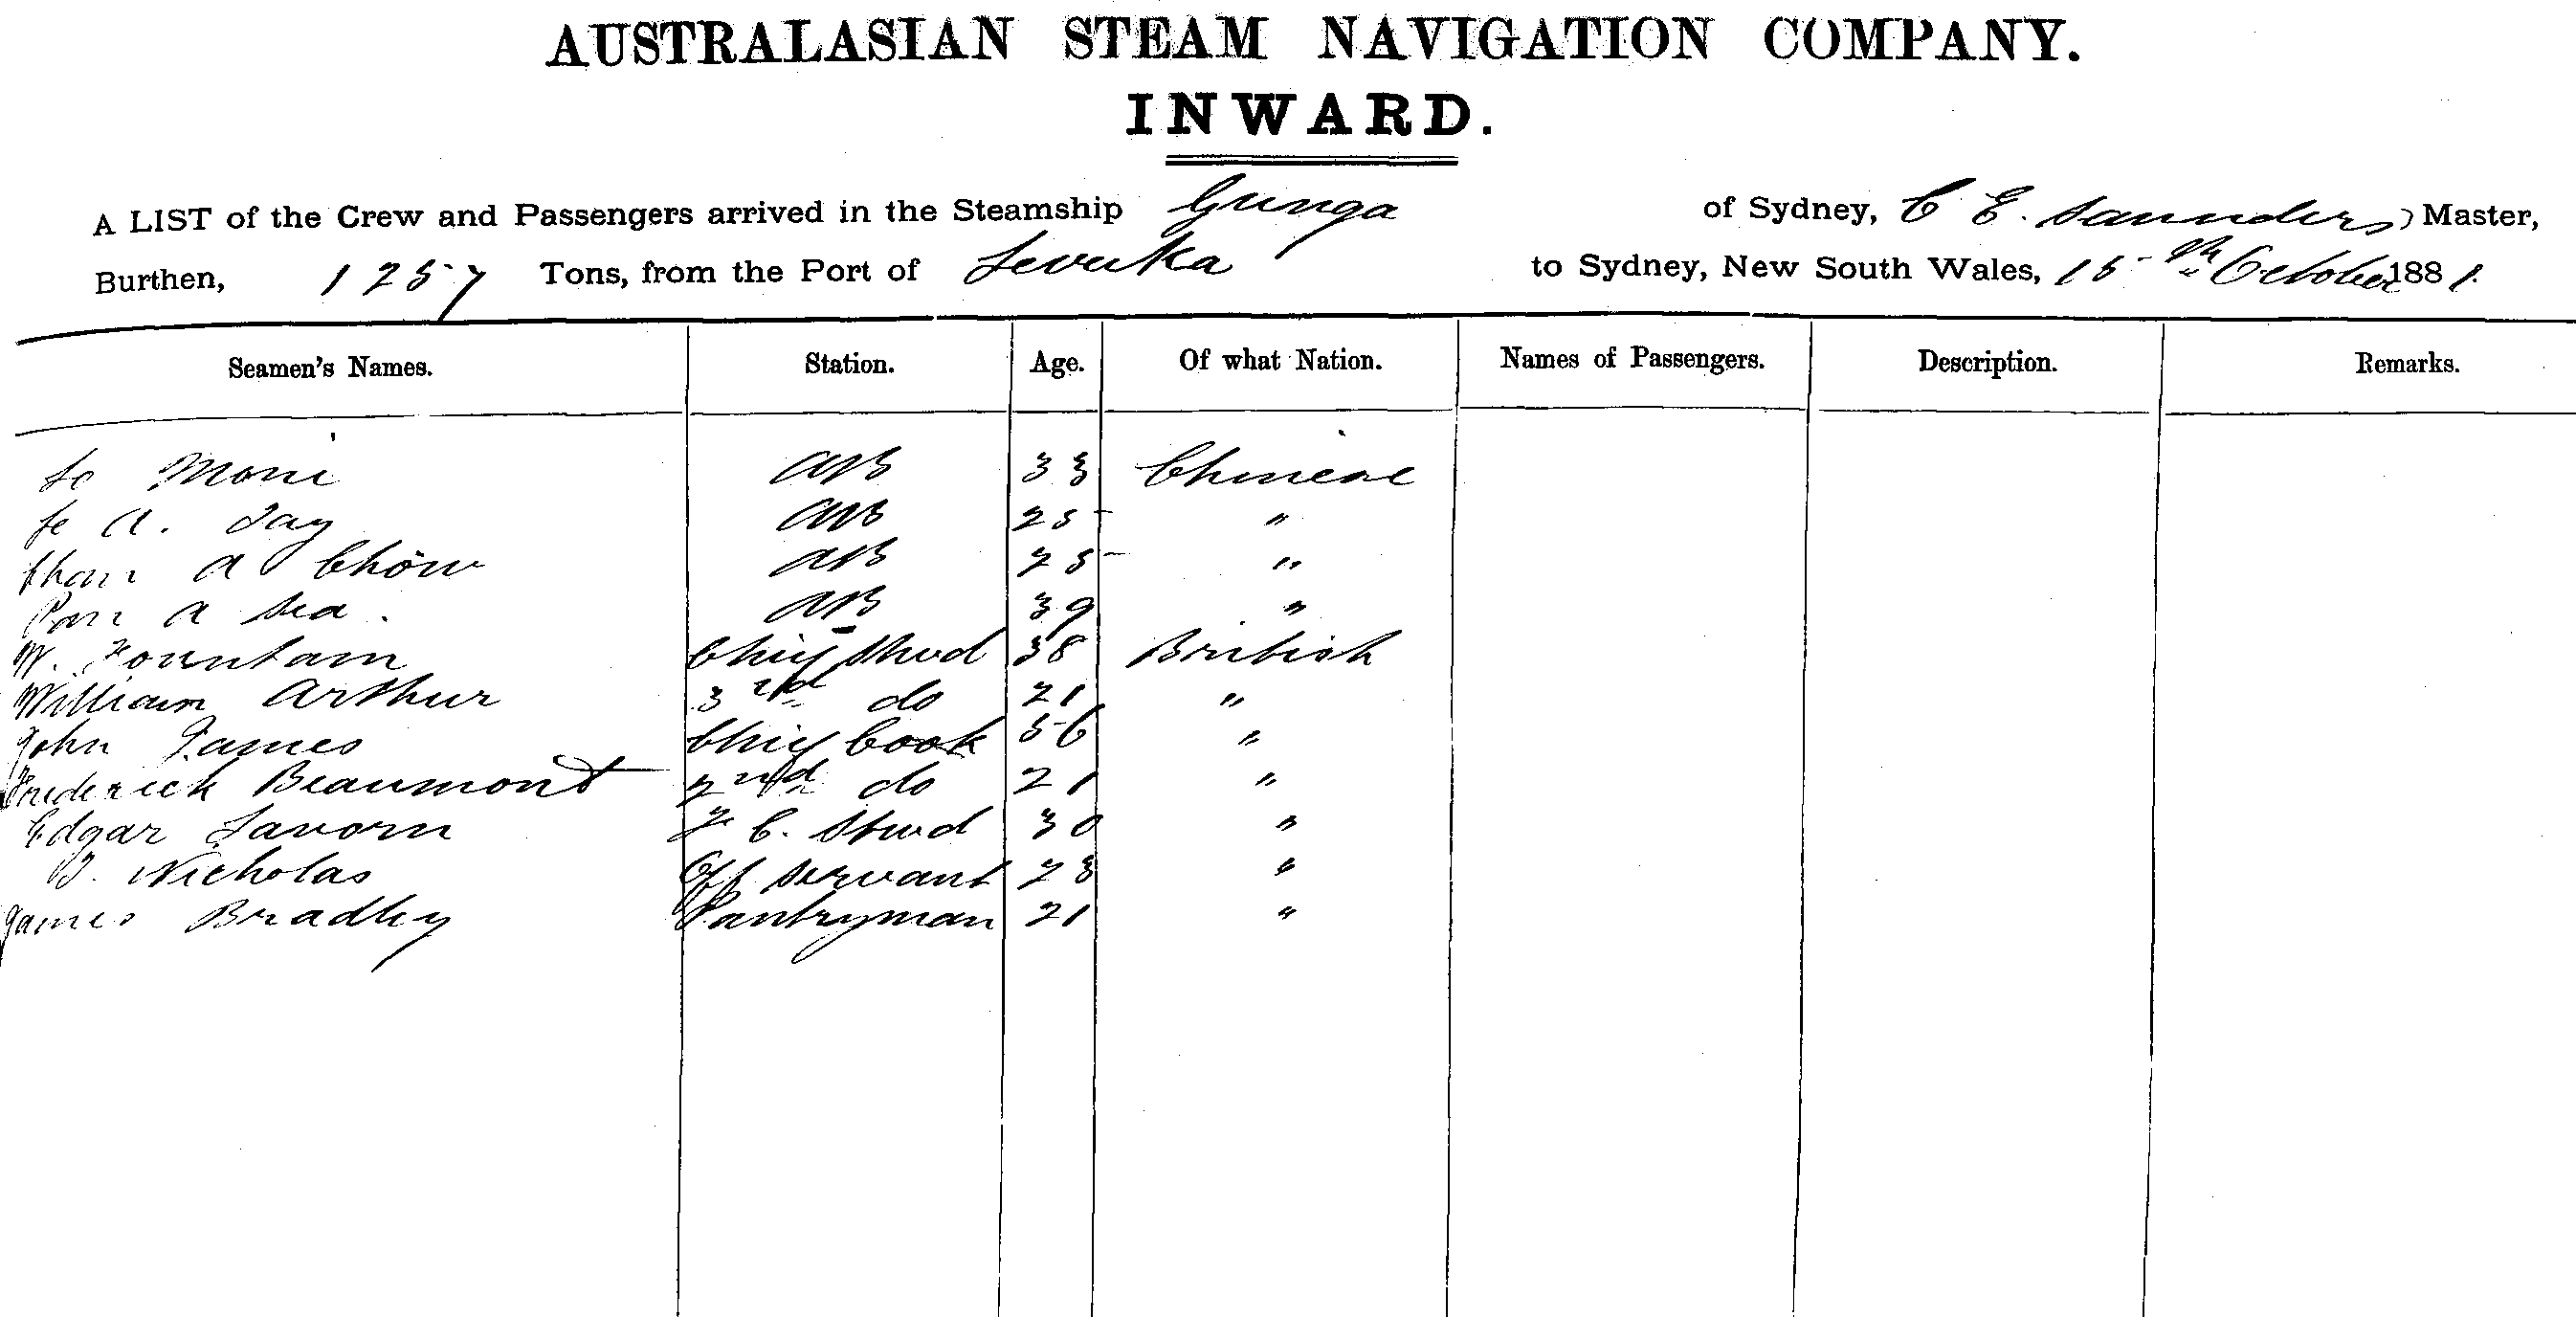 AUSTRALASIAN STEAM NAVIGATION COMPANY.
INWARD.
A LIST of the Crew and Passengers arrived in the Steamship Gunga of Sydney, C E. Saunders, Master,
Burthen, 1257 Tons, from the Port of Levuka to Sydney, New South Wales, 15th October 1881.
Seamen's Names. Station. Age. Of what Nation. Names of Passengers. Description. Remarks.
AB 33 Chinese
A. AB 25 "
a Chow AB 25 "
a Sea. AB 39 "
W. Fountain Chief Stwd 38 British
William Arthur 3rd do 21 "
John James Chief Cook 56 "
Frederick Beaumont 2nd do 21 "
Edgar F C. Stwd 30 "
Nicholas Off servant 23 "
James Bradley Pantryman 21 "